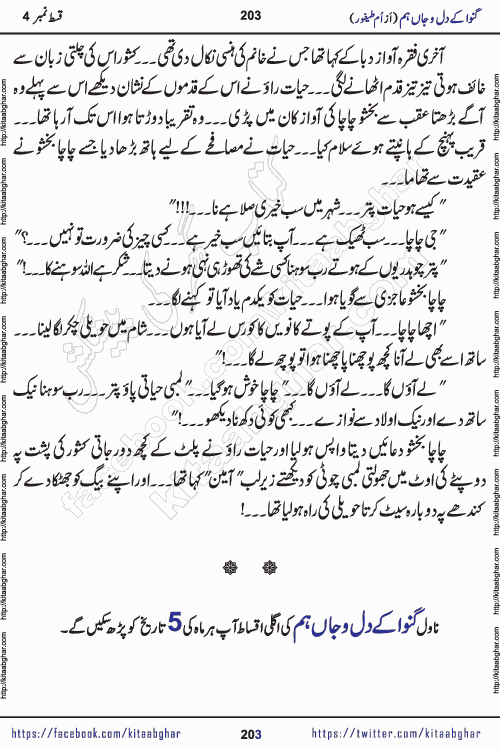 گنوا کے دل و جاں ہم (از اُم طیفور) 203 قسط نمبر 4
آخری فقرہ آواز دبا کے کہا تھا جس نے خانم کی ہنسی نکال دی تھی ۔۔۔ کشور اس کی چلتی زبان سے
خائف ہوتی تیز تیز قدم اٹھانے لگی ۔۔۔ حیات راؤ نے اس کے قدموں کے نشان دیکھے اس سے پہلے وہ
آگے بڑھتا عقب سے بخشو چاچا کی آواز کان میں پڑی ۔۔۔ وہ تقریبا دوڑتا ہوا اس تک آ رہا تھا ۔۔۔
قریب پہنچ کے ہانپتے ہوئے سلام کیا ۔۔۔ حیات نے مصافحے کے لیے ہاتھ بڑھا دیا جسے چاچا بخشو نے
عقیدت سے تھاما ۔۔۔
" کیسے ہو حیات پتر ۔۔۔ شہر میں سب خیری صلا ہے نا ۔۔۔ !!!"
" جی چاچا ۔۔۔ سب ٹھیک ہے ۔۔۔ آپ بتائیں سب خیر ہے ۔۔۔ کسی چیز کی ضرورت تو نہیں ۔۔۔ ؟"
" پتر چوہدریوں کے ہوتے رب سوہنا کسی شے کی تھوڑ ہی نہی ہونے دیتا ۔۔۔ شکر ہے اللہ سوہنے کا ۔۔۔ !"
چاچا بخشو عاجزی سے گویا ہوا ۔۔۔ حیات کو یکدم یاد آیا تو کہنے لگا ۔۔۔
" اچھا چاچا ۔۔۔ آپ کے پوتے کا نویں کا کورس لے آیا ہوں ۔۔۔ شام میں حویلی چکر لگا لینا ۔۔۔
ساتھ اسے بھی لے آنا کچھ پوچھنا پاچھنا ہوا تو پوچھ لے گا ۔۔۔ !"
" لے آؤں گا ۔۔۔ لے آؤں گا ۔۔۔ " چاچا خوش ہو گیا ۔۔۔ " لمبی حیاتی پاؤ پتر ۔۔۔ رب سوہنا نیک
ساتھ دے اور نیک اولاد سے نوازے ۔۔۔ کبھی کوئی دکھ نا دیکھو ۔۔۔ !"
چاچا بخشو دعائیں دیتا واپس ہو لیا اور حیات راؤ نے پلٹ کے کچھ دور جاتی کشور کی پشت پہ
دوپٹے کی اوٹ میں جھولتی لمبی چوٹی کو دیکھتے زیر لب " آمین " کہا تھا ۔۔۔ اور اپنے بیگ کو جھٹکا دے کر
کندھے پہ دوبارہ سیٹ کرتا حویلی کی راہ ہو لیا تھا ۔۔۔ !
ناول گنوا کے دل و جاں ہم کی اگلی اقساط آپ ہر ماہ کی 5 تاریخ کو پڑھ سکیں گے ۔
https://facebook.com/kitaabghar 203 https://twitter.com/kitaabghar
http://kitaabghar.com